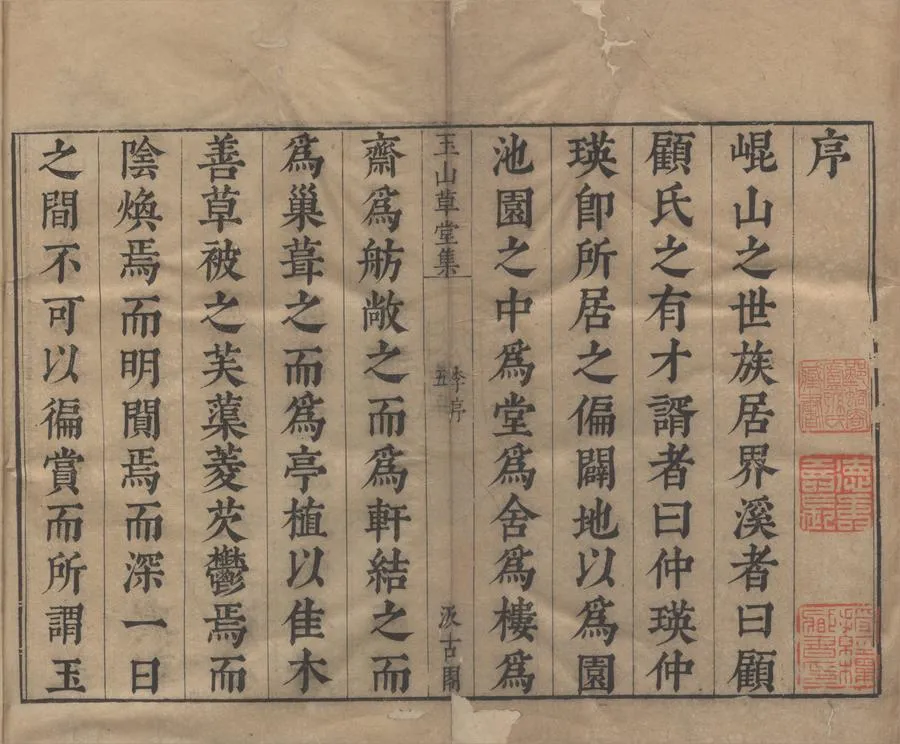 序
崐山之世族居界溪者曰顧
顧氏之有才諝者曰仲瑛仲
瑛即所居之偏闢地以爲園
池園之中爲堂爲舍爲樓爲
玉山草堂集
李序
五
汲古閣
齋爲舫敞之而爲軒結之而
爲巢葺之而爲亭植以佳木
善草被之芙蕖菱芡鬱焉而
陰煥焉而明閴焉而深一日
之間不可以徧賞而所謂玉